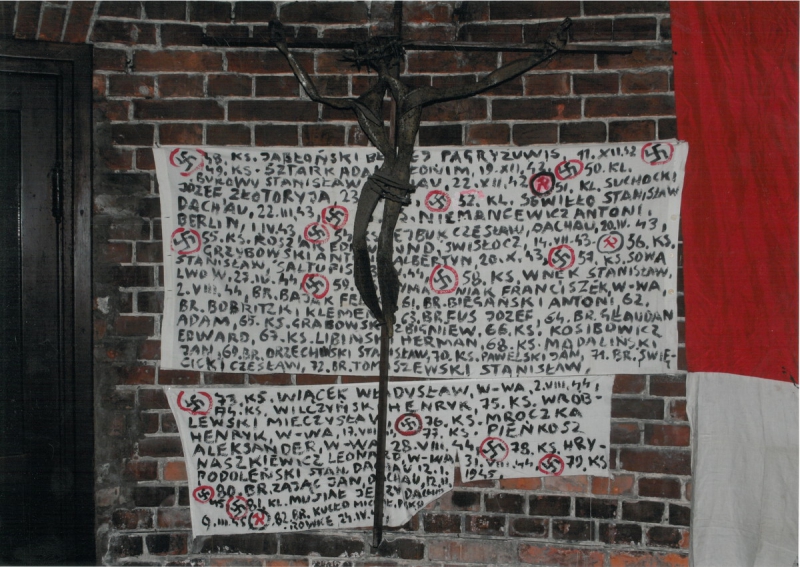 48. KS. JABŁOŃSKI PAGRYZUWIS, 11.XII.42
49. KS. SZTARK ADAM 19.XII.42, 50. KL.
BUKOWY STANISŁAW, DACHAU, 23.VII.42, 51. KL. SUCHOCKI
JÓZEF ZŁOTORYJA, 23 52. KL. SEWIŁŁO STANISŁAW
DACHAU, 22.III.43, NIEMANCEWICZ ANTONI,
BERLIN, 1.IV.43, CZESŁAW, DACHAU, 20.IV.43,
55. KS. ŚWISŁOCZ, 14.VII.43 56. KS.
GRZYBOWSKI ALBERTYN, 20.X.43, 57. KS. SOWA
STANISŁAW, 58. KS. WNEK STANISŁAW,
LWOW, 23.IV.44, 59. FRANCISZEK, W-WA,
2.VIII.44, BR. BAJAK 61. BR. BIEGAŃSKI ANTONI, 62,
BR. BOBRITZKI KLEMENS, 63. BR. FUS JÓZEF, 64. BR. GLAUDAN
ADAM, 65. KS. GRABOWSKI ZBIGNIEW, 66. KS, KOSIBOWICZ
EDWARD, 67. KS. LIBIŃSKI HERMAN, 68. KS. MADALIŃSKI
JAN, 69. BR. ORZECHOWSKI STANISŁAW, 70. KS. PAWELSKI JAN, 71. BR. ŚWIĘ-
CICKI CZESŁAW, 72. BR. TOMASZEWSKI STANISŁAW,
73. KS. WIĄCEK WŁADYSŁAW, W-WA, 2.VIII.44,
74. KS. WILCZYŃSKI HENRYK, 75. KS. WRÓB-
LEWSKI MIECZYSŁAW, 76. KS. MROCZKA
HENRYK, W-WA, 17.VIII. 77. KS. PIEŃKOSZ
ALEKSANDER, W-WA, 28.VIII.44, 78. KS. HRY-
NASZKIEWICZ LEONARD, W-WA 31.VIII.44, 79. KS
PODOLEŃSKI STAN. DACHAU 12.I. 1945
80. BR. ZAJĄC JAN, DACHAU, 12.II.
45 81. KL. MUSIAŁ JERZY DACHAU
9.III.45 82. BR. KUCŁO
24.IV.